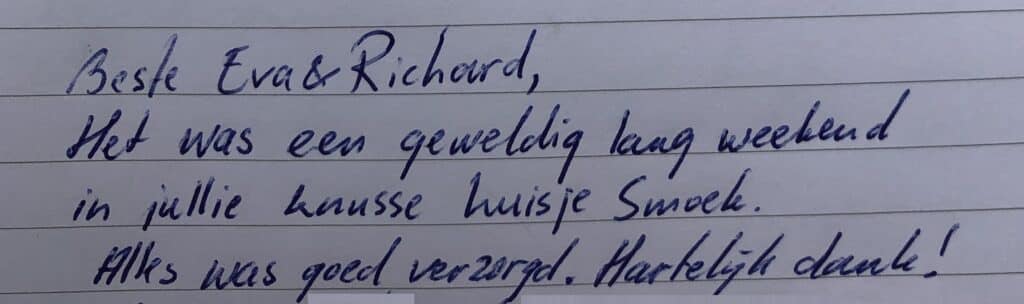 Beste Eva & Richard,
Het was een geweldig lang weekend
in jullie knusse huisje Smoek.
Alles was goed verzorgd. Hartelijk dank!